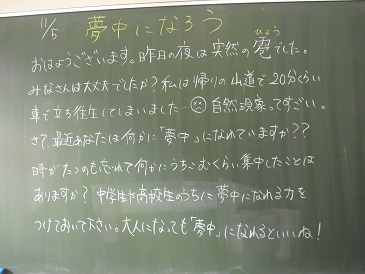 11/5 夢中になろう
ひょう
おはようございます。昨日の夜は突然の雹でした。
みなさんは大丈夫でしたか?私は帰りの山道で20分くらい
車で立ち往生してしまいました…自然現象ってすごい。
さて、最近あなたは何かに「夢中」になれていますか??
時がたつのも忘れて何かにうちこむくらい集中したことは
ありますか?中学生や高校生のうちに夢中になれる力を
つけておいて下さい。大人になっても「夢中」になれるといいね!